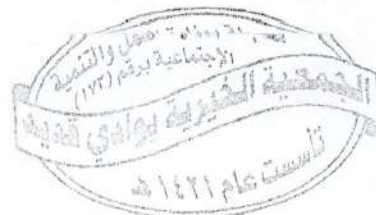 العمل والتنمية
الاجتماعية برقم (١٧٣)
الجمعية الخيرية بوادي قديد
تأسست عام ١٤٢١ هـ